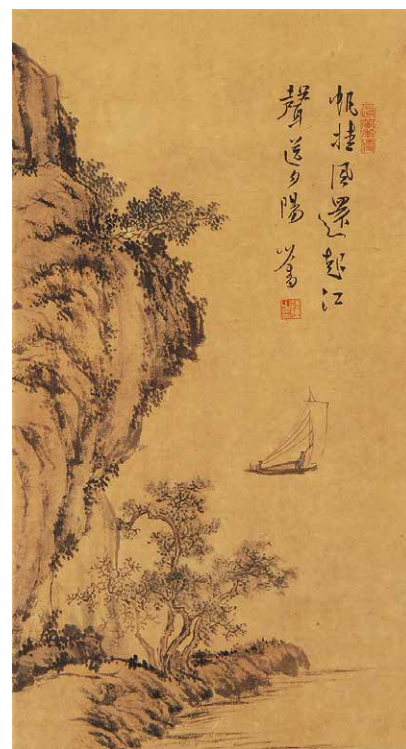 帆挂風還起江
聲送夕陽 心畬